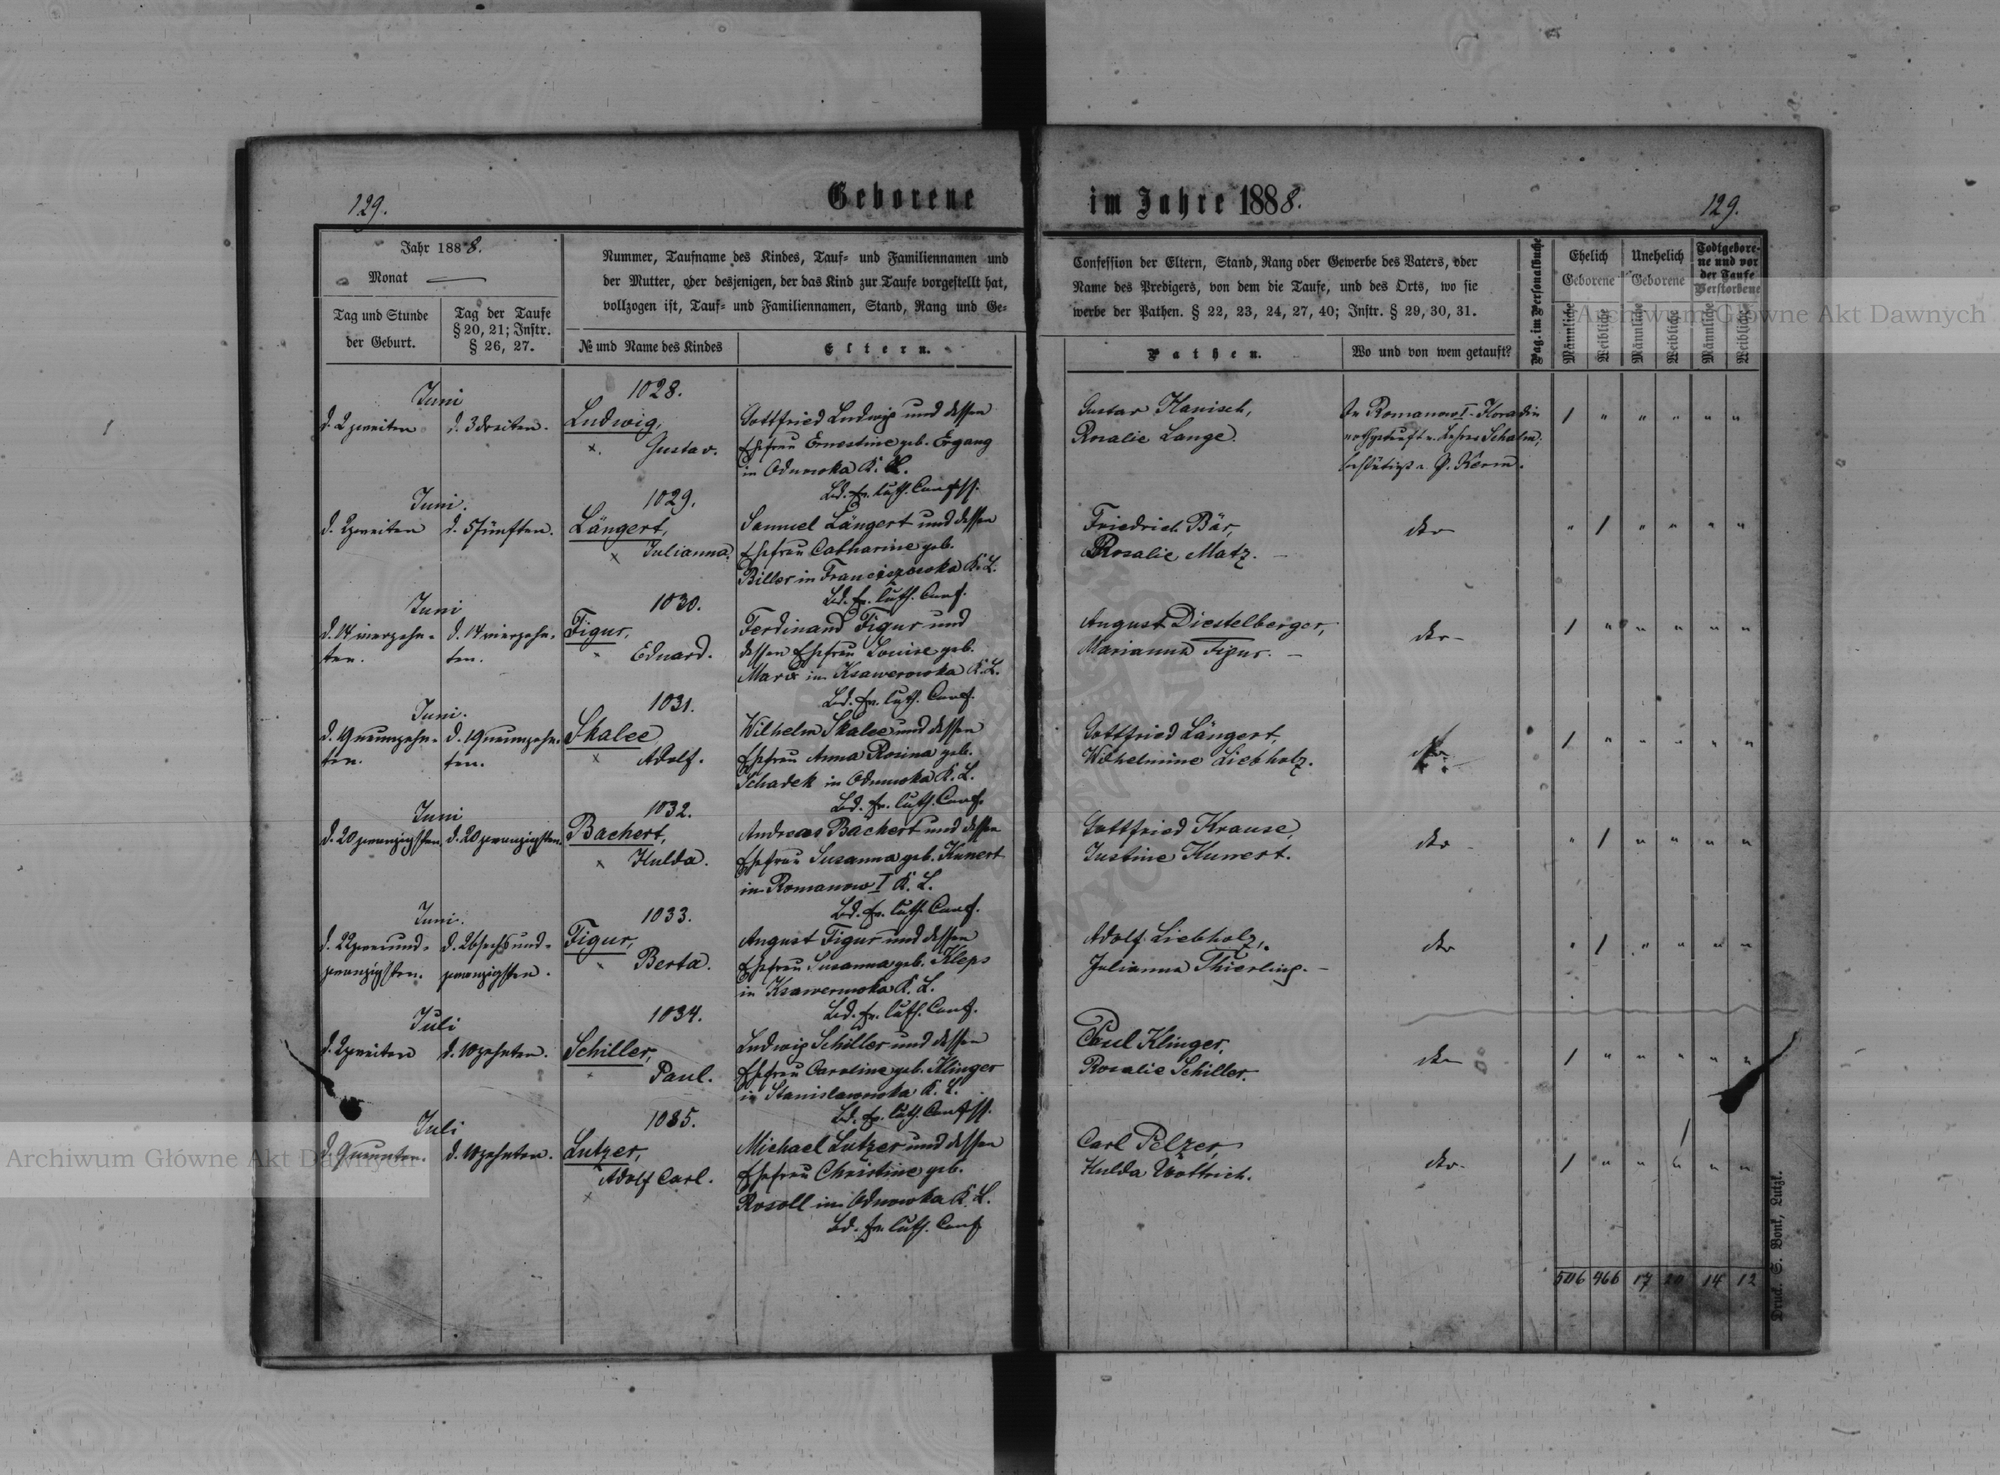 129.
Geborene
im Jahre 1888.
129.
Jahr 1888.
Monat
Tag und Stunde
der Geburt.
Tag der Taufe
§ 20, 21; Instr.
§ 26, 27.
Nummer, Taufname des Kindes, Tauf- und Familiennamen und
der Mutter, oder desjenigen, der das Kind zur Taufe vorgestellt hat,
vollzogen ist, Tauf- und Familiennamen, Stand, Rang und Ge-
№ und Name des Kindes
Eltern.
Confession der Eltern, Stand, Rang oder Gewerbe des Vaters, oder
Name des Predigers, von dem die Taufe, und des Orts, wo sie
werbe der Pathen. § 22, 23, 24, 27, 40; Instr. § 29, 30, 31.
Pathen.
Wo und von wem getauft?
Pag. im Personalbuche
Ehelich
Geborene
Unehelich
Geborene
Todtgebore-
ne und vor
der Taufe
Verstorbene
Männliche
Weibliche
Männliche
Weibliche
Männliche
Weibliche
Juni
d. 2 zweiten
d. 3 dreiten.
1028.
Ludwig,
×. Gustav.
Gottfried Ludwig und dessen
Ehefrau Ernestine geb. Ergang
in Odumoka K. L.
Bd. Ev. luth. Confess.
Gustav Hanisch,
Rosalie Lange.
In Romanow I - Koradin
nothgetauft v. Lehrer Schalm,
bestätigt v. P. Kerm.
/ " " " " "
Juni.
d. 2 zweiten
d. 5 fünften.
1029.
Längert,
× Julianna.
Samuel Längert und dessen
Ehefrau Catharine geb.
Biller in Franciszowka K. L.
Bd. Ev. luth. Conf.
Friedrich Bär,
Rosalie Matz. —
dto
" / " " " "
Juni
d. 14 vierzehn-
ten.
d. 14 vierzehn-
ten.
1030.
Figur,
× Eduard.
Ferdinand Figur und
dessen Ehefrau Louise geb.
Marx in Ksawerowka K. L.
Bd. Ev. luth. Conf.
August Diestelberger,
Marianna Figur. —
dto —
/ " " " " "
Juni.
d. 19 neunzehn-
ten.
d. 19 neunzehn-
ten.
1031.
Skalee
× Adolf.
Wilhelm Skalee und dessen
Ehefrau Anna Rosina geb.
Schadek in Odumoka K. L.
Bd. Ev. luth. Conf.
Gottfried Längert,
Wilhelmine Liebholz.
dto
/ " " " " "
Juni
d. 20 zwanzigsten.
d. 20 zwanzigsten.
1032.
Bachert,
× Hulda.
Andreas Bachert und dessen
Ehefrau Susanna geb. Kunert
in Romanow I K. L.
Bd. Ev. luth. Conf.
Gottfried Krause,
Justine Kunert.
dto
" / " " " "
Juni.
d. 22 zweiund-
zwanzigsten.
d. 26 sechsund-
zwanzigsten.
1033.
Figur,
× Berta.
August Figur und dessen
Ehefrau Susanna geb. Kleps
in Ksawerowka K. L.
Bd. Ev. luth. Conf.
Adolf Liebholz,
Julianna Thierling. —
dto
" / " " " "
Juli
d. 2 zweiten
d. 10 zehnten.
1034.
Schiller,
× Paul.
Ludwig Schiller und dessen
Ehefrau Caroline geb. Klinger
in Stanislawowka K. L.
Bd. Ev. luth. Confess.
Paul Klinger,
Rosalie Schiller.
dto
/ " " " " "
Juli
d. 9 neunten.
d. 10 zehnten.
1035.
Lutzer,
× Adolf Carl.
Michael Lutzer und dessen
Ehefrau Christine geb.
Rosoll in Odnowka K. L.
Bd. Ev. luth. Conf
Carl Pelzer,
Hulda Wottrich.
dto.
/ " " " " "
506 466 17 20 14 12
Druck. S. Bonk, Lutzk.
Archiwum Główne Akt Dawnych
Archiwum Główne Akt Dawnych